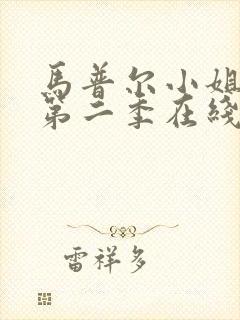 馬普尔小姐
第二季在綫
雷祥多